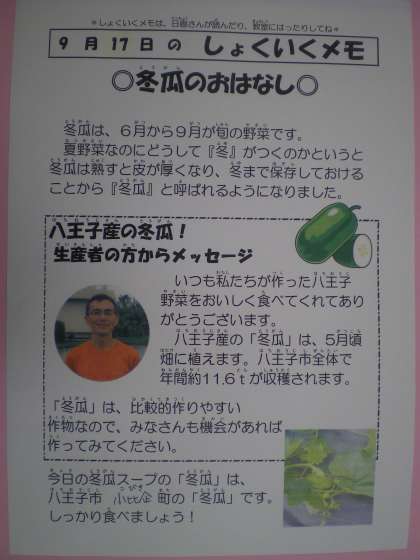 ＊しょくいくメモは、日直さんが読んだり、教室にはったりしてね＊
9月17日の しょくいくメモ
○冬瓜のおはなし○
冬瓜は、6月から9月が旬の野菜です。
夏野菜なのにどうして『冬』がつくのかというと
冬瓜は熟すと皮が厚くなり、冬まで保存しておける
ことから『冬瓜』と呼ばれるようになりました。
八王子産の冬瓜！
生産者の方からメッセージ
いつも私たちが作った八王子
野菜をおいしく食べてくれてあり
がとうございます。
八王子産の「冬瓜」は、5月頃
畑に植えます。八王子市全体で
年間約11.6ｔが収穫されます。
「冬瓜」は、比較的作りやすい
作物なので、みなさんも機会があれば
作ってみてください。
今日の冬瓜スープの「冬瓜」は、
八王子市 小比企 町の「冬瓜」です。
しっかり食べましょう！